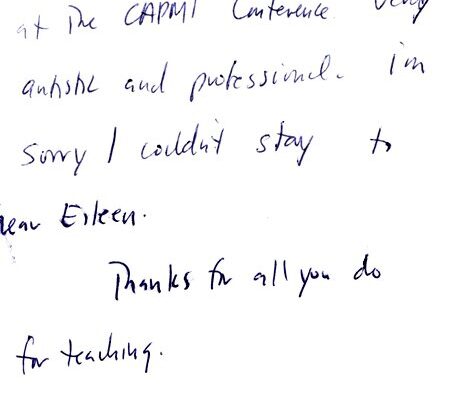 at the CAPMT Conference very
artistic and professional. I'm
sorry I couldn't stay to
hear Eileen.
Thanks for all you do
for teaching.